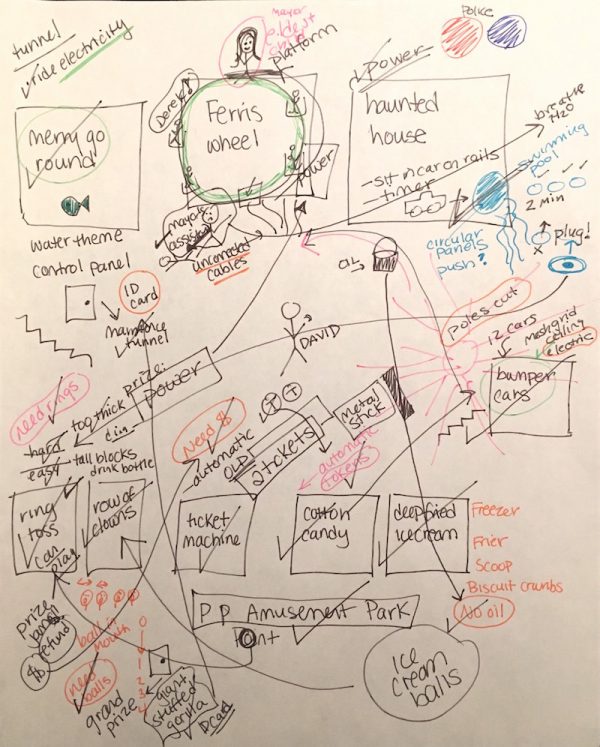 tunnel
ride electricity
mayor
eldest
child
platform
POLICE
power
Derek!
Ferris
wheel
haunted
house
merry go
round
power
-sit in car on rails
timer
breathe
H2O
swimming
pool
2 min
mayor's
assistant
unconnected
cables
water theme
control panel
circular
panels
push?
x
plug!
ID
card
OIL
poles cut
maintence
tunnel
DAVID
12 cars
mesh grid
ceiling
electric
bumper
cars
prize:
power
need rings
too thick
hard
easy
tall blocks
drink bottle
Need $
automatic
OLD
2 tickets
T T
metal
stick
automatic
tokens
ring
toss
can
play
row of
clowns
ticket
machine
cotton
candy
deep fried
ice cream
Freezer
Frier
Scoop
Biscuit crumbs
No oil
PP Amusement Park
Font
prize
$
refund
ball in
mouth
0
1
2
3
4
need
balls
grand
prize
giant
stuffed
gorilla
ID card
ICE
CREAM
balls